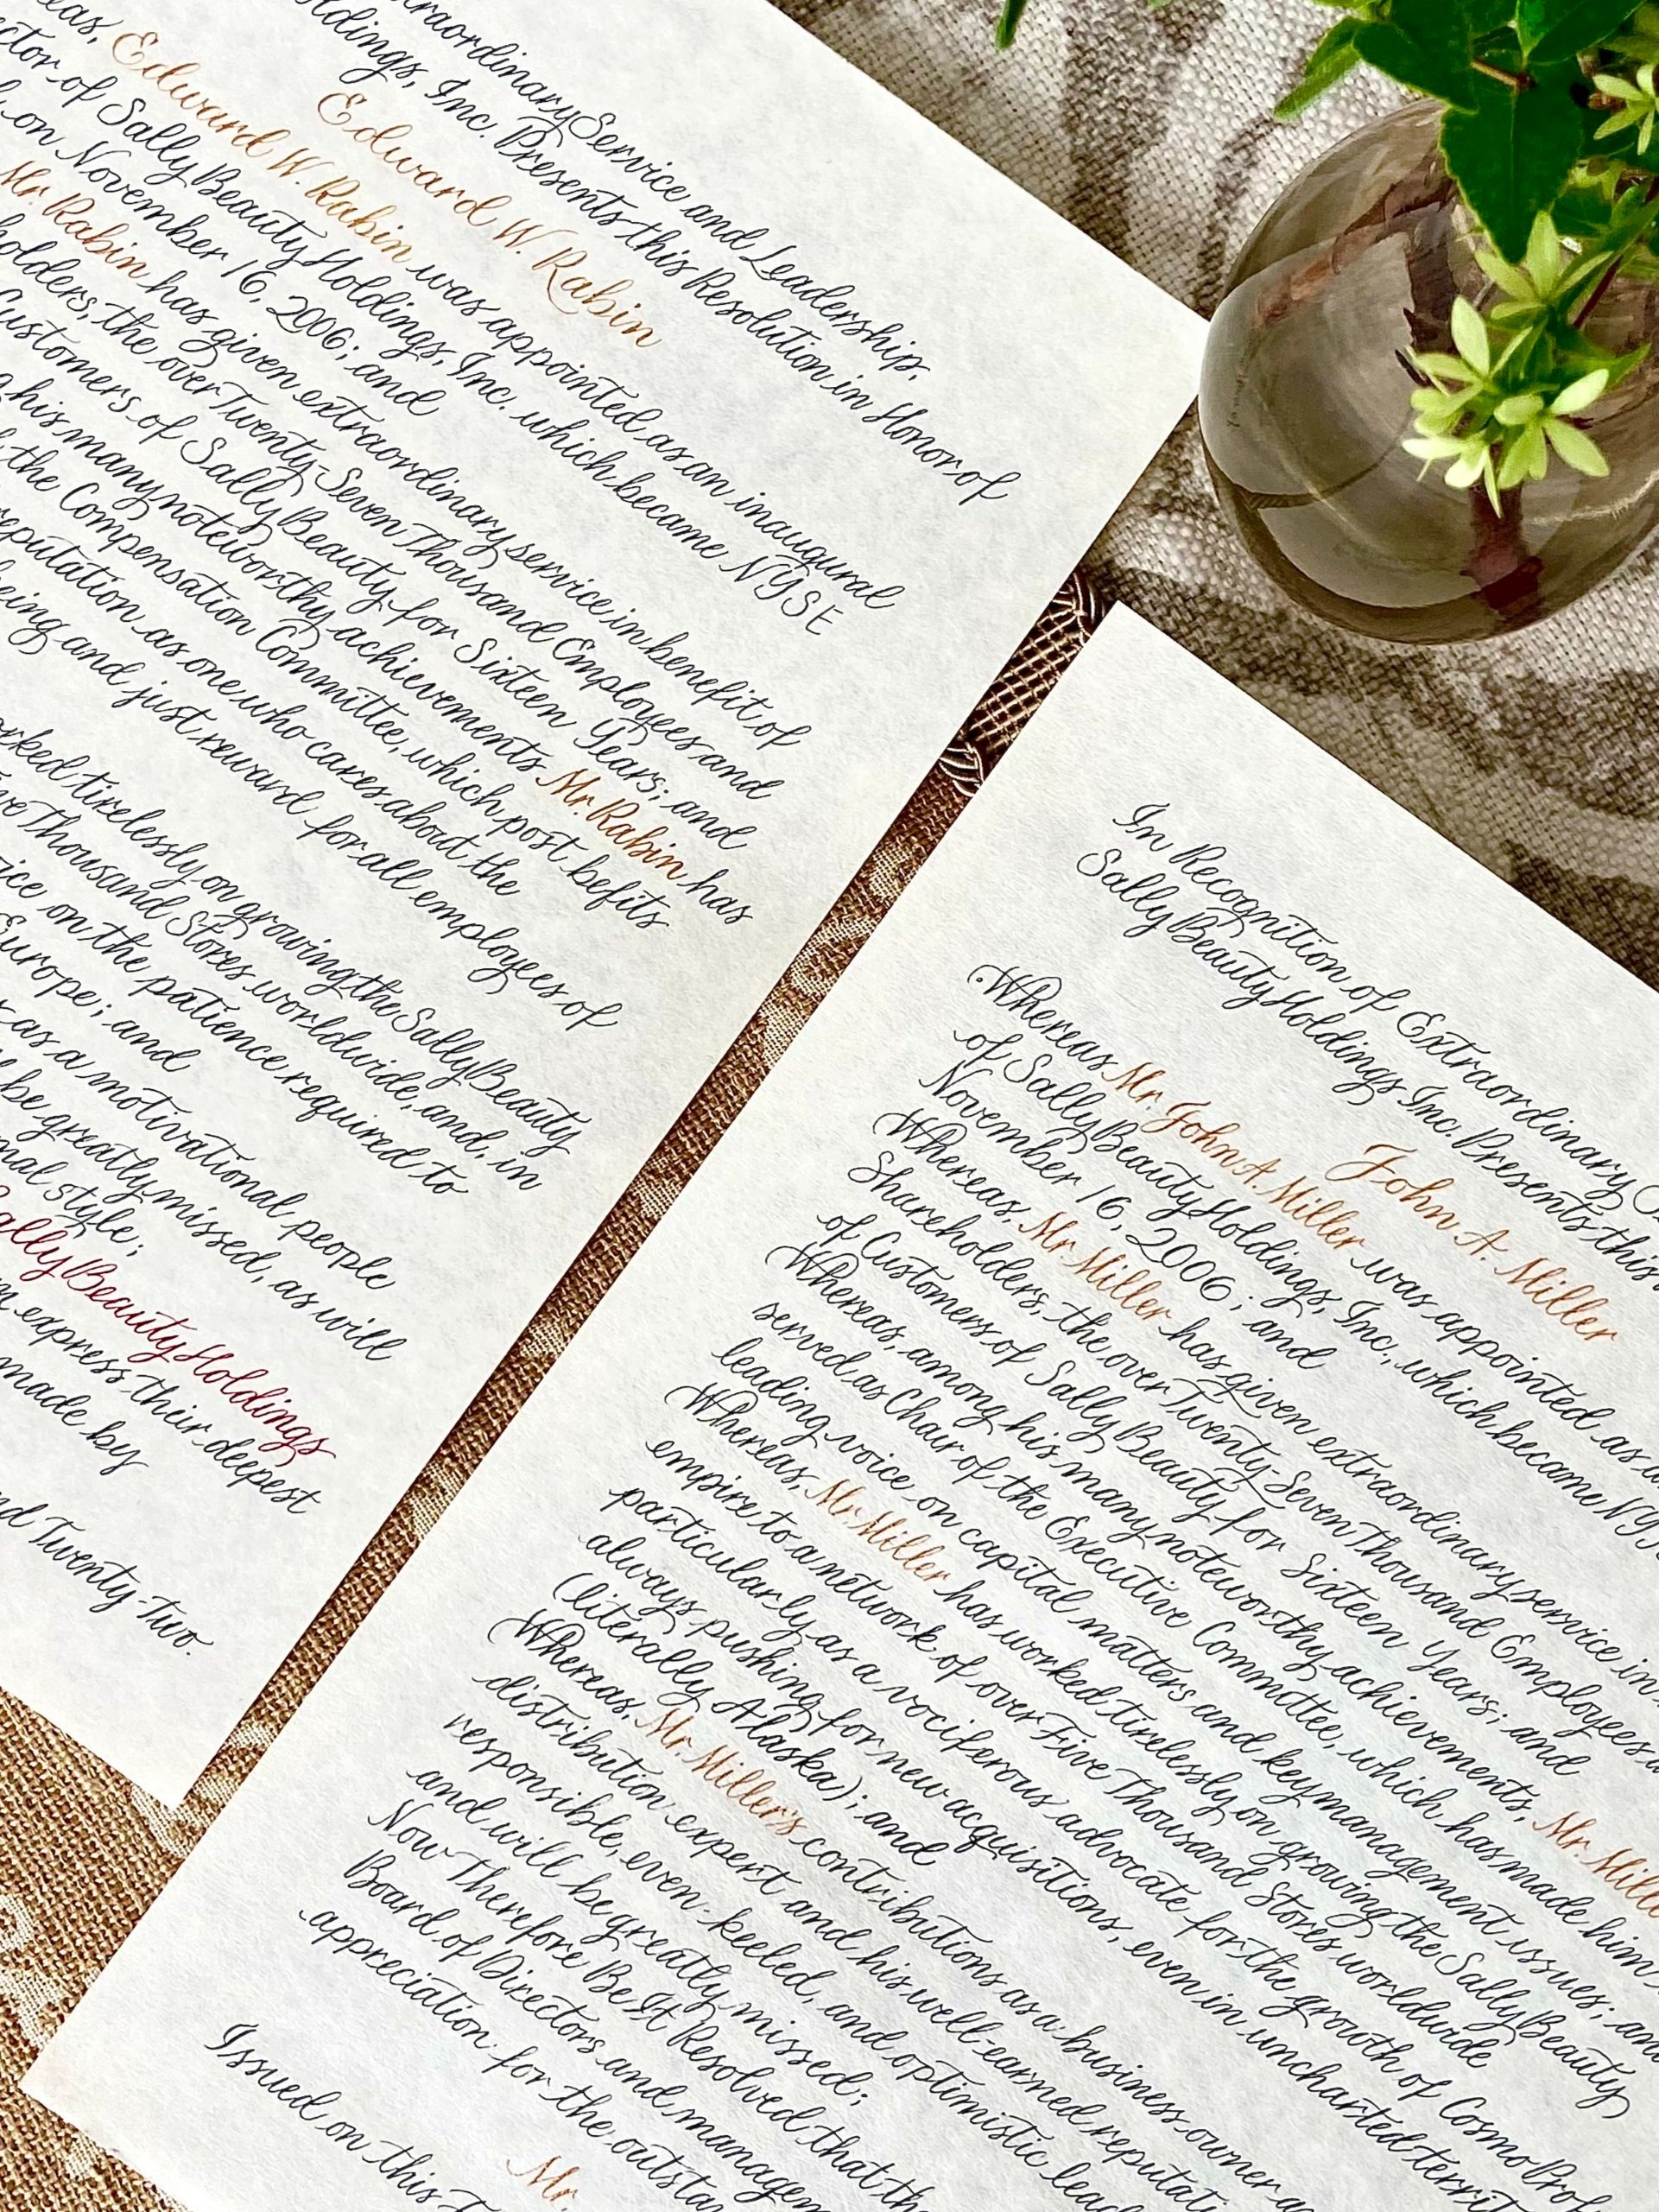 raordinary Service and Leadership,
oldings, Inc. Presents this Resolution in Honor of
Edward W. Rabin
eas, Edward W. Rabin was appointed as an inaugural
ctor of Sally Beauty Holdings, Inc. which became NYSE
on November 16, 2006; and
Mr. Rabin has given extraordinary service in benefit of
holders, the over Twenty-Seven Thousand Employees and
Customers of Sally Beauty for Sixteen Years; and
his many noteworthy achievements Mr. Rabin has
the Compensation Committee, which post befits
reputation as one who cares about the
eing and just reward for all employees of
orked tirelessly on growing the Sally Beauty
ve Thousand Stores worldwide, and, in
ice on the patience required to
Europe; and
as a motivational people
be greatly missed, as will
nal style;
Sally Beauty Holdings
m express their deepest
made by
nd Twenty-Two.
In Recognition of Extraordinary
Sally Beauty Holdings Inc. Presents this
John A. Miller
Whereas Mr. John A. Miller was appointed as
of Sally Beauty Holdings, Inc., which became NY
November 16, 2006; and
Whereas, Mr Miller has given extraordinary service in
Shareholders, the over Twenty-Seven Thousand Employees
of Customers of Sally Beauty for Sixteen Years; and
Whereas, among his many noteworthy achievements, Mr. Mill
served as Chair of the Executive Committee, which has made him
leading voice on capital matters and key management issues; an
Whereas, Mr. Miller has worked tirelessly on growing the Sally Beauty
empire to a network of over Five Thousand Stores worldwide
particularly as a vociferous advocate for the growth of CosmoProf
always pushing for new acquisitions, even in uncharted territ
(literally Alaska); and
Whereas, Mr. Miller's contributions as a business owner
distribution expert and his well-earned reputati
responsible, even-keeled, and optimistic lead
and will be greatly missed;
Now Therefore Be It Resolved that th
Board of Directors and managem
appreciation for the outsta
Mr.
Issued on this